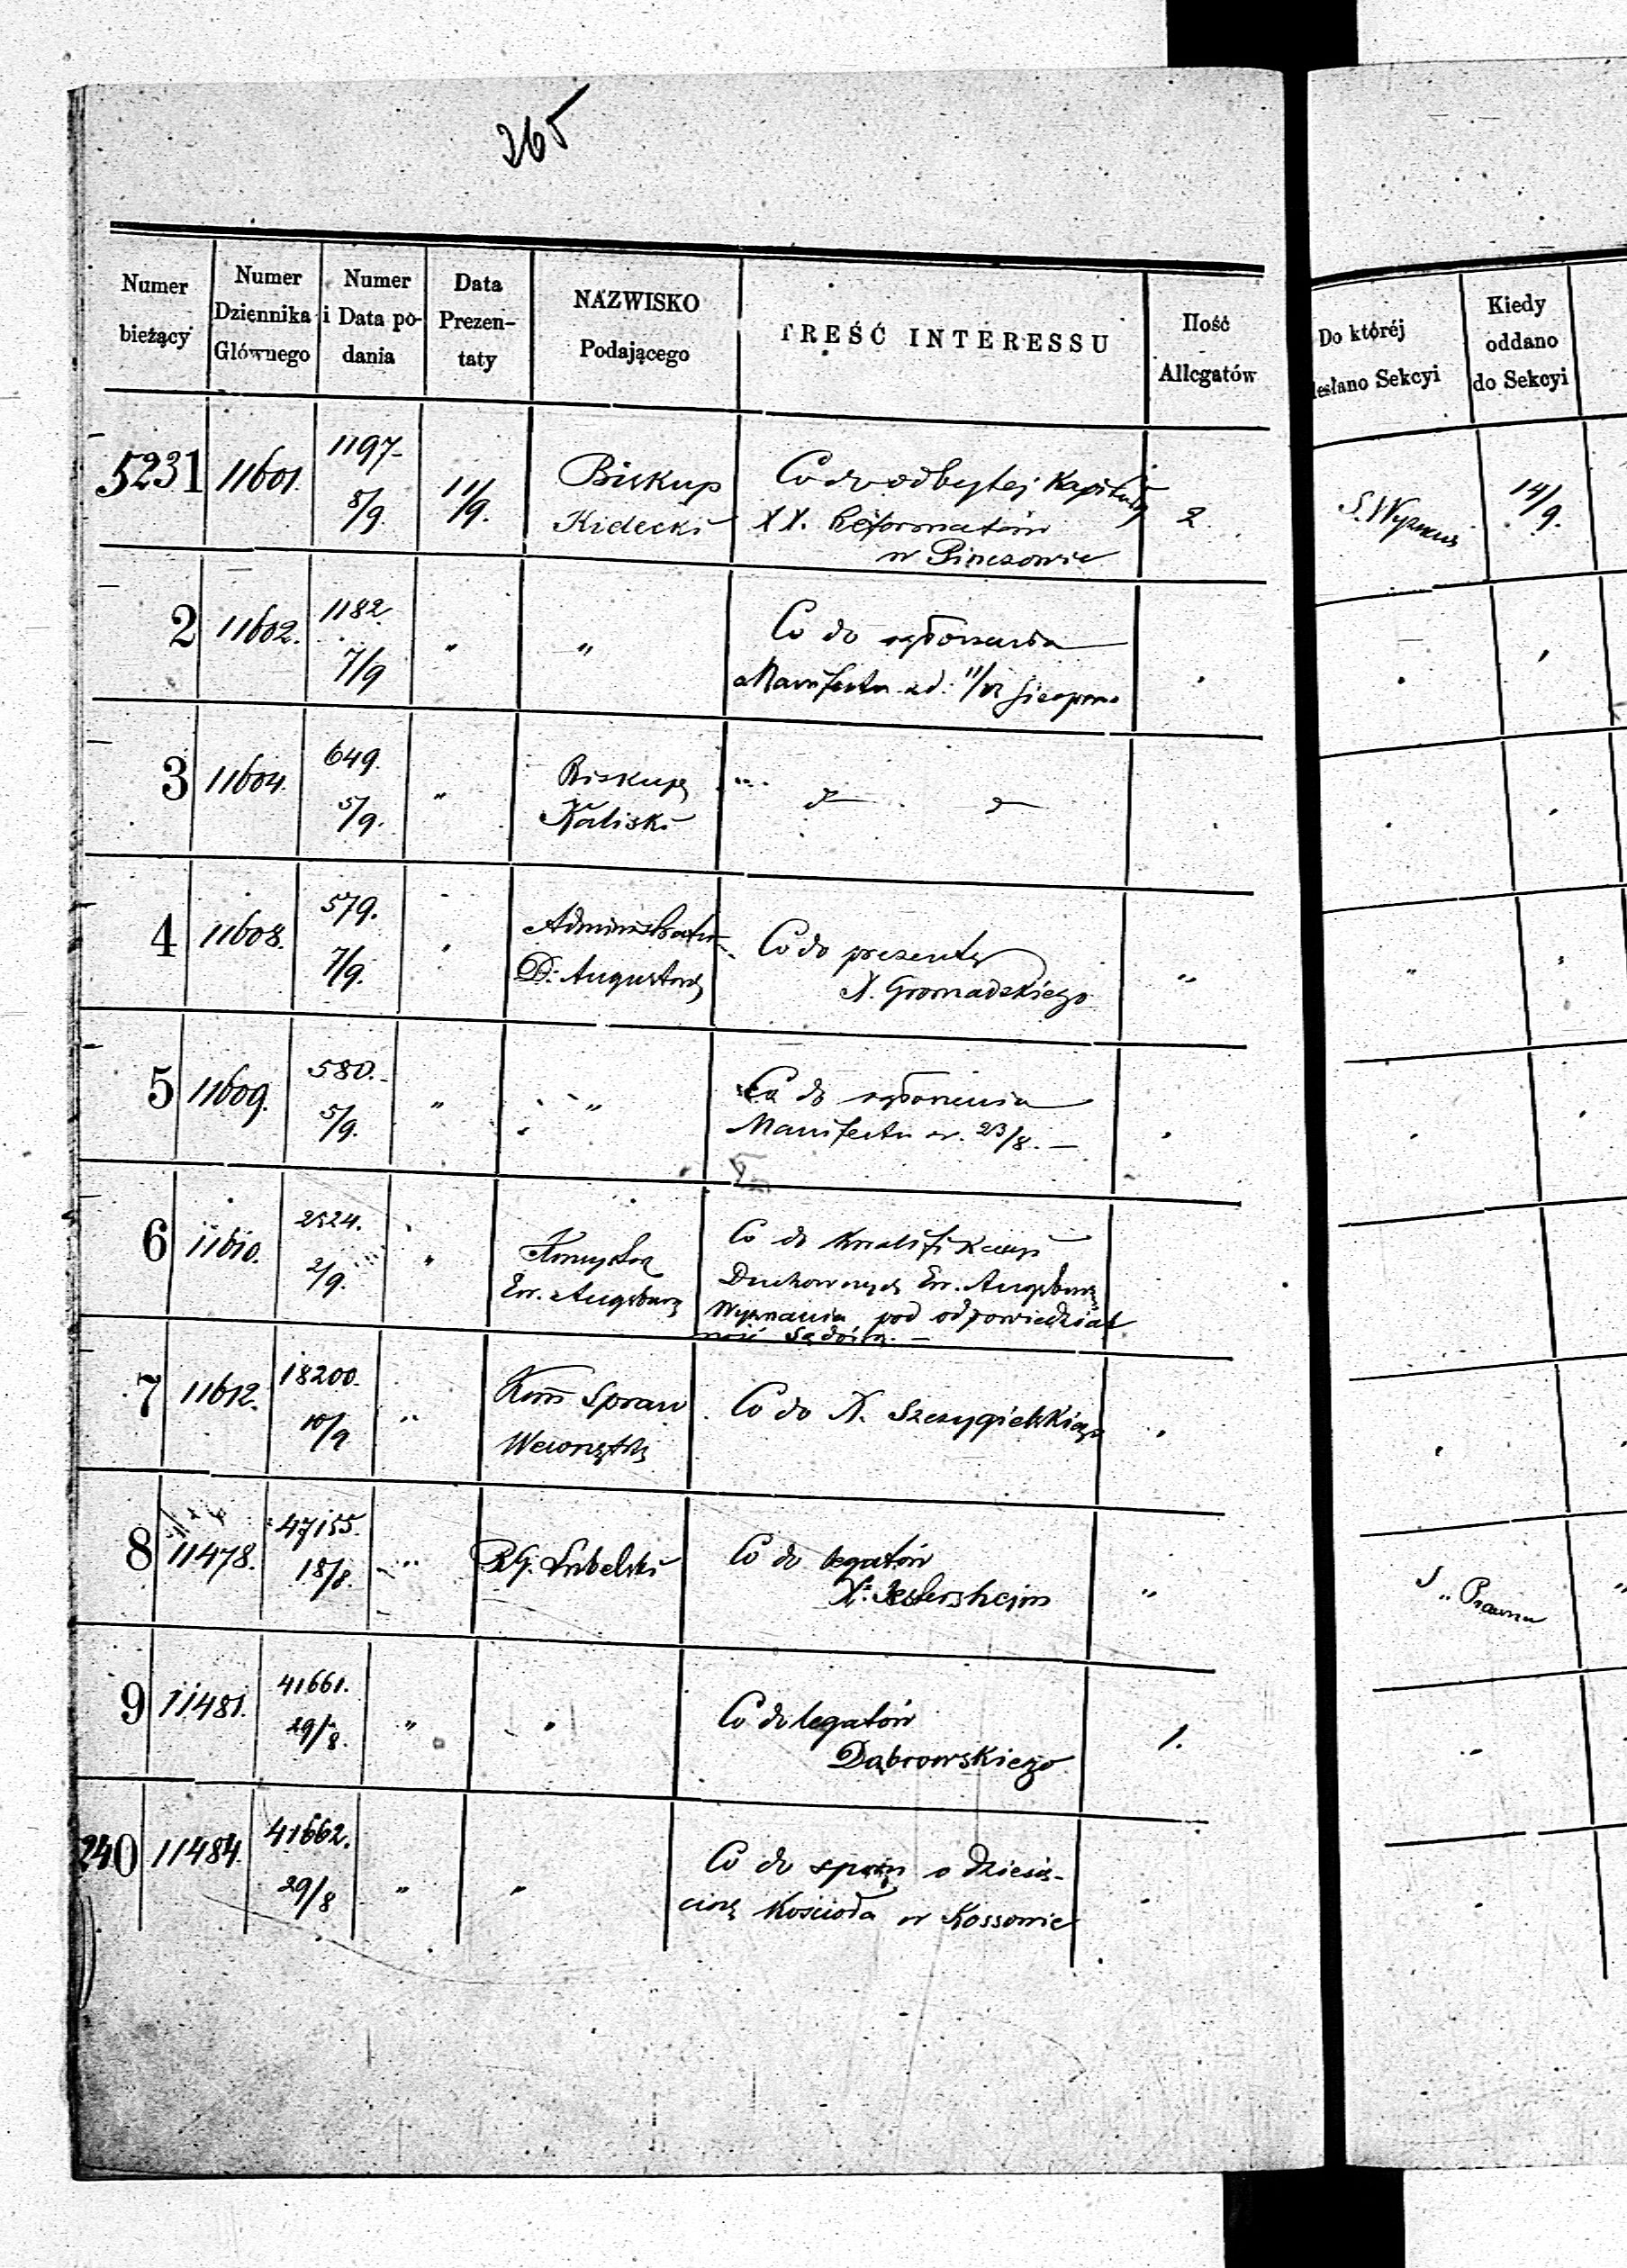 265
Numer
bieżący
Numer
Dziennika
Głównego
Numer
i Data po-
dania
Data
Prezen-
taty
NAZWISKO
Podającego
TREŚĆ INTERESSU
Ilość
Allegatów
Do któréj
esłano Sekcyi
Kiedy
oddano
do Sekcyi
5231 11601. 1197. 8/9. 11/9.
Biskup
Kielecki
Co do odbytej Kapituły
XX. Reformatów
w Pinczowie
2.
14/9.
2 11602. 1182. 7/9 " "
Co do ogłoszenia
Manifestu
3 11604. 649. 5/9. "
Biskup
Kaliski
4 11608. 579. 7/9.
Administrator
D. Augustow
Co do prezenty
X. Gromadzkiego
"
5 11609. 580. 5/9. " "
Co do ogłoszenia
Manifestu 23/8. —
6 11610. 2524. 2/9. "
Konystorz
Ew. Augsburg
Co do Kwalifikacyi
Duchownych Ew. Augsburg
Wyznania pod odpowiedzial
ność Sądową. —
7 11612. 18200. 10/9 "
Kom Spraw
Wewnętrz
Co do X. Szczygielskiego
8 11478. 47155. 18/8. "
R.G. Lubelski
Co do legatów
"
S. Prawna
9 11481. 41661. 29/8. "
Co do legatów
Dąbrowskiego
1.
240 11484. 41662. 29/8 " "
Co do spo o dziesię-
cinę Kościoła w Kossowie